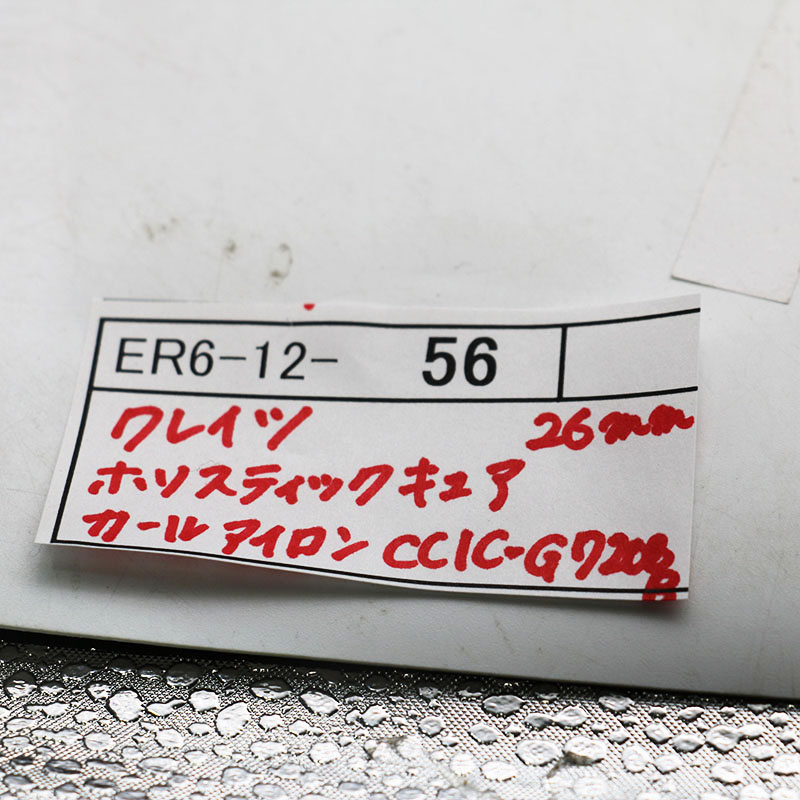 ER6-12- 56
クレイツ 26mm
ホリスティックキュア
カールアイロン CCIC-G7208B